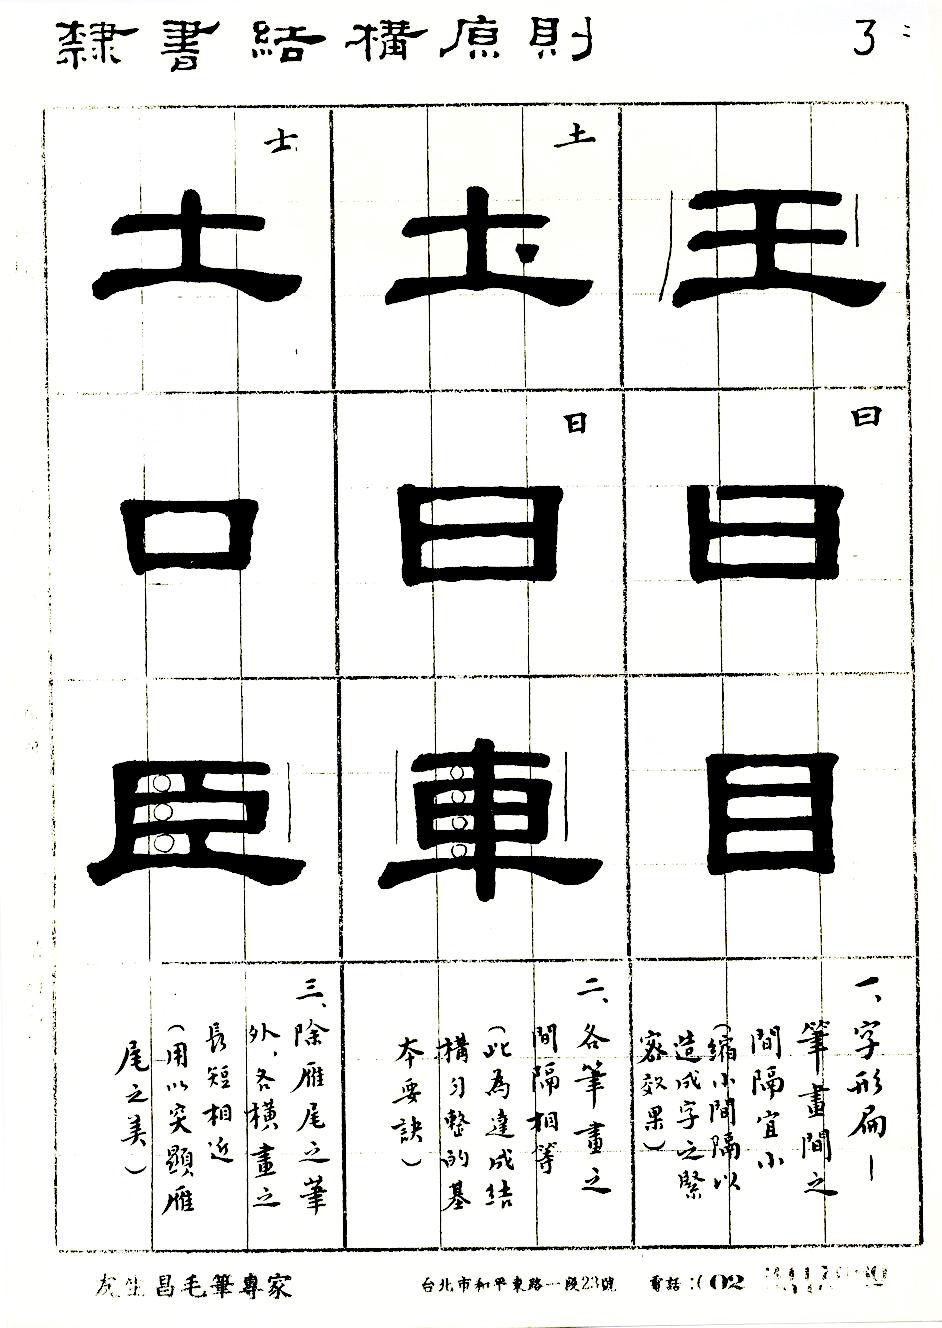 隸書結構原則
3
王
土
土
士
士
曰
曰
日
日
口
目
車
臣
一、字形扁—
筆畫間之
間隔宜小
(縮小間隔以
造成字之緊
密效果)
二、各筆畫之
間隔相等
(此為達成結
構勻整的基
本要訣)
三、除雁尾之筆
外，各橫畫之
長短相近
(用以突顯雁
尾之美)
友生昌毛筆專家
台北市和平東路一段23號
電話:(02